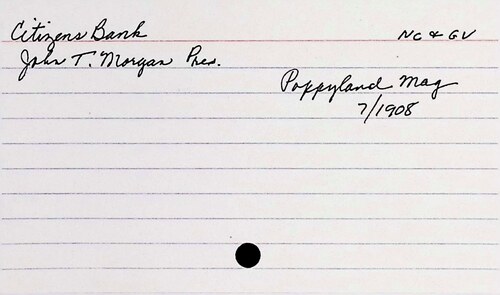 Citizens Bank NC & GV
John T. Morgan Pres.
Poppyland Mag
7/1908